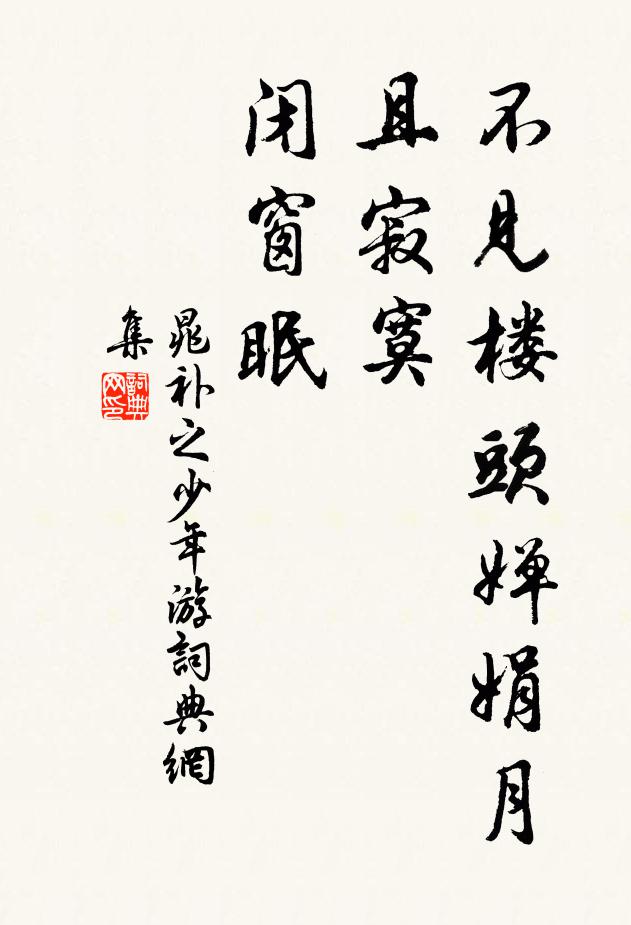 不见楼頭婵娟月
且寂寞
闭窗眠
晁补之少年游詞典網
集
詞典
网印